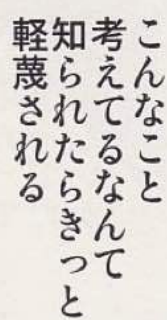 こんなこと
考えてるなんて
知られたらきっと
軽蔑される